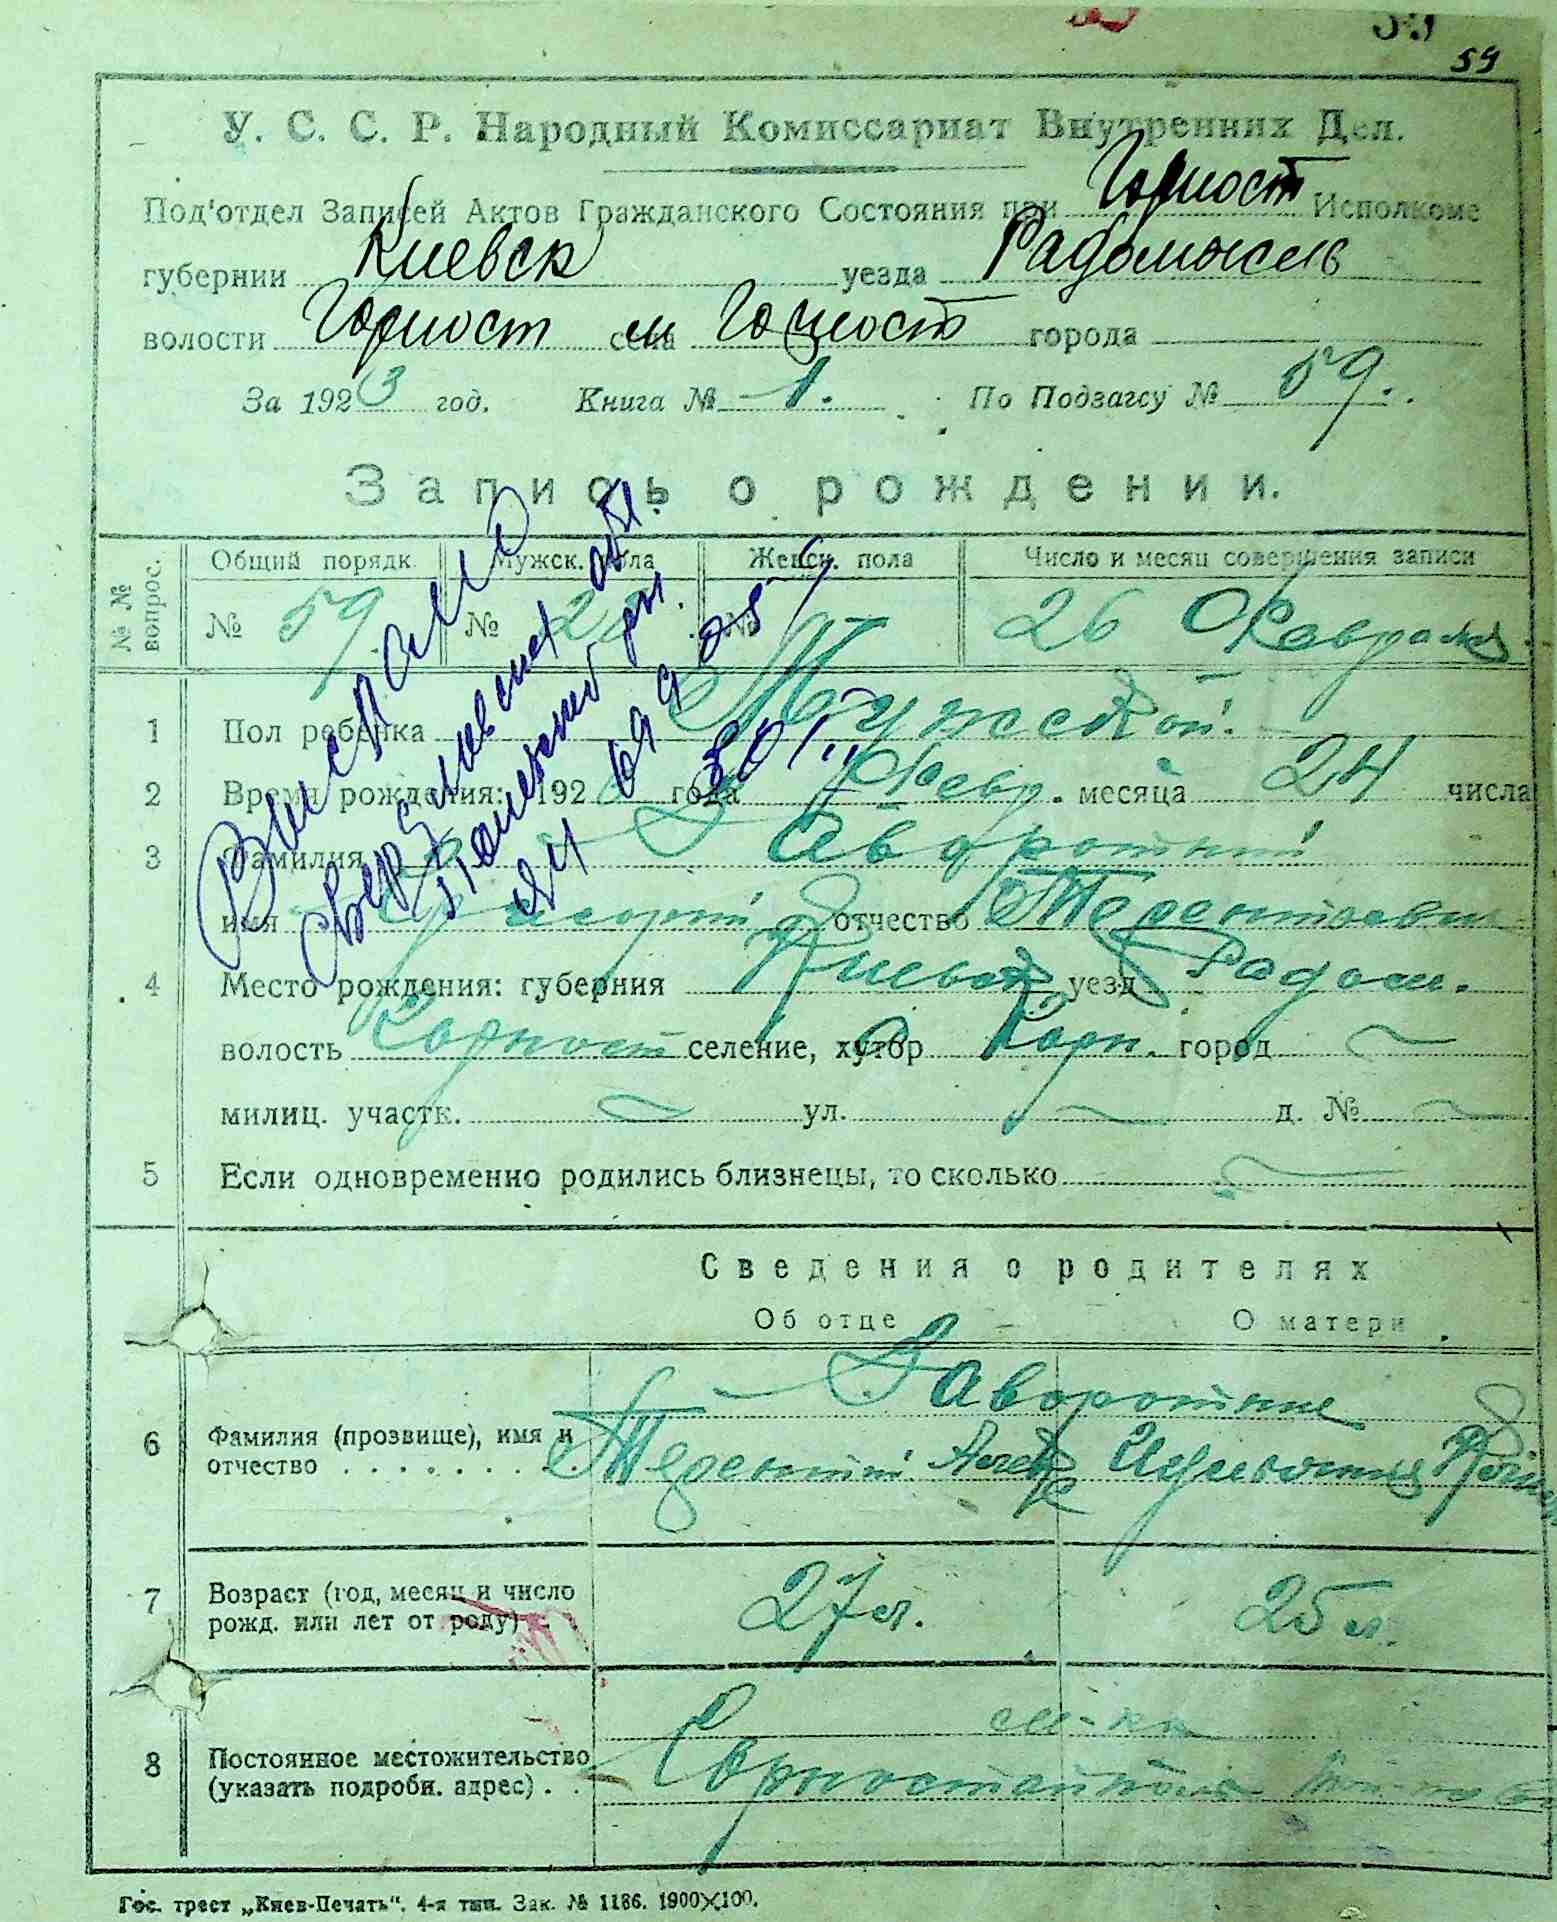 59
У. С. С. Р. Народный Комиссариат Внутренних Дел.
Под'отдел Записей Актов Гражданского Состояния при Горност Исполкоме
губернии Киевск уезда Радомысль
волости Горност м села Горност города
За 1923 год. Книга № 1. По Подзагсу № 59.
Запись о рождении.
№№ вопрос. Общий порядк. Мужск. пола Женск. пола Число и месяц совершения записи
№ 59 № № 26 Февраля
1 Пол ребенка Мужской.
2 Время рождения: 192 года Февр. месяца 24 числа
3 Фамилия Заворотний
имя Григорий отчество Терентьевич
4 Место рождения: губерния Киевск уезд Радом.
волость Горност селение, хутор Горн. город
милиц. участк. ул. д. №
5 Если одновременно родились близнецы, то сколько
Выслано
Сведения о родителях
Об отце О матери
Заворотние
6 Фамилия (прозвище), имя и
отчество Терентий
7 Возраст (год, месяц и число
рожд. или лет от роду) 27 л. 25 л.
м-ко
8 Постоянное местожительство Горностайполь
(указать подробн. адрес)
Гос. трест „Киев-Печать". 4-я тип. Зак. № 1186. 1900×100.